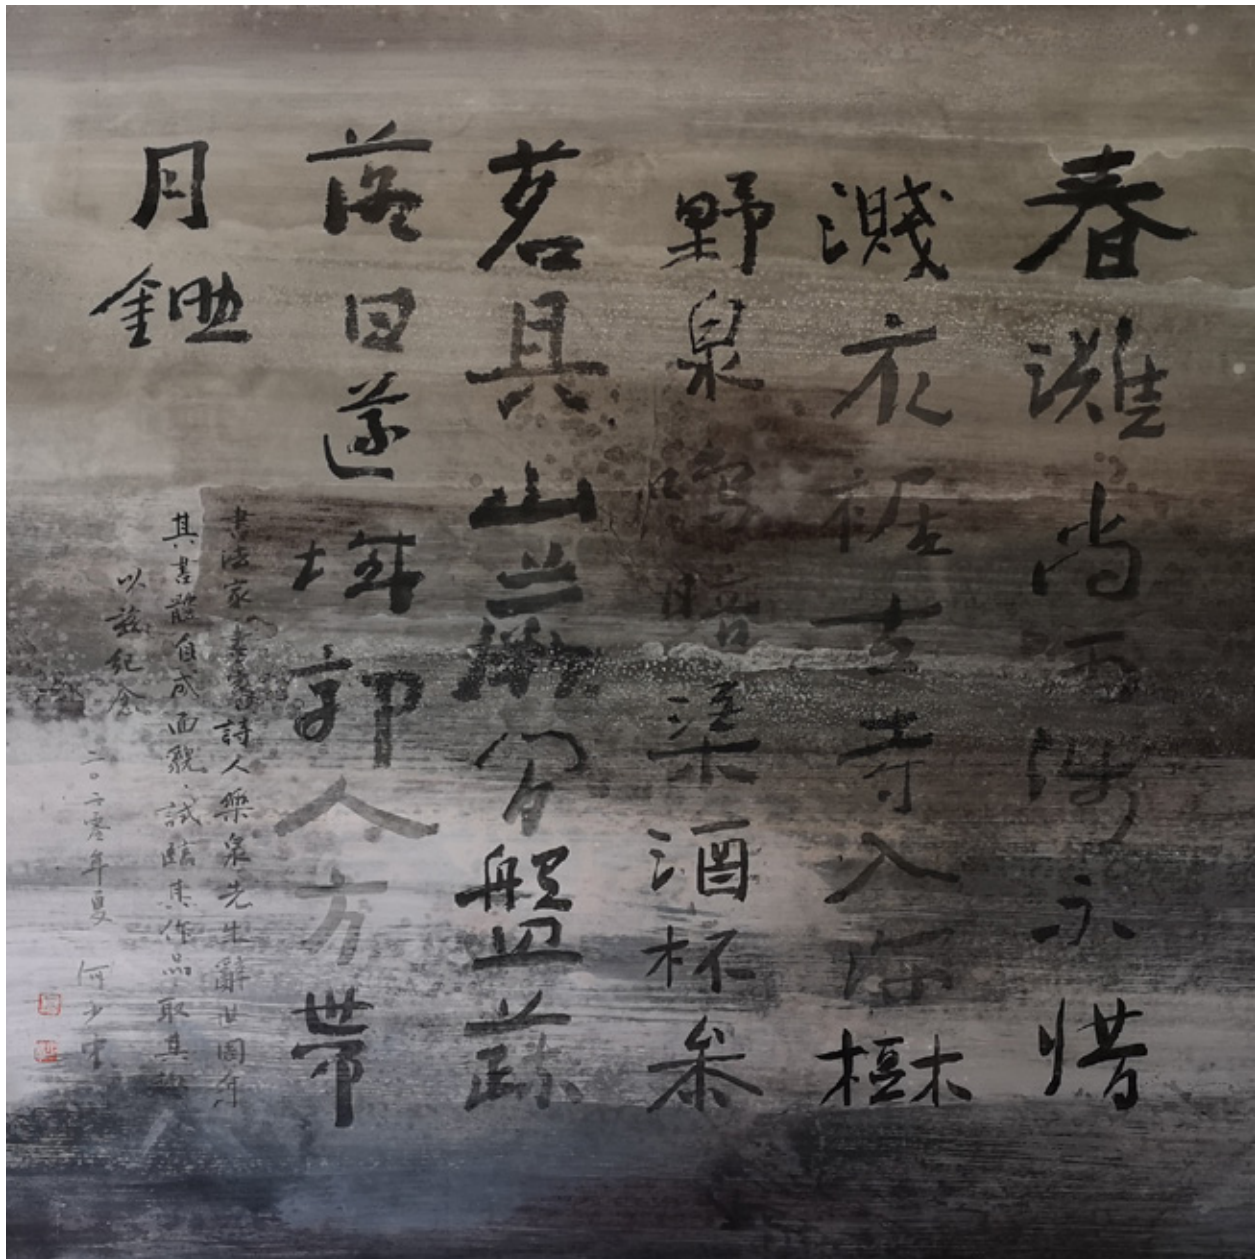 春灘尚可涉不惜
濺衣裾古寺入深樾
野泉鳴暗渠酒杯參
茗具山蕨間盤蔬
落日遂城郭人方帶
月鋤
書法家、畫家、詩人樂泉先生辭世周年
其書體自成面貌、試臨其作品取其
以茲紀念
二〇二零年夏 何少